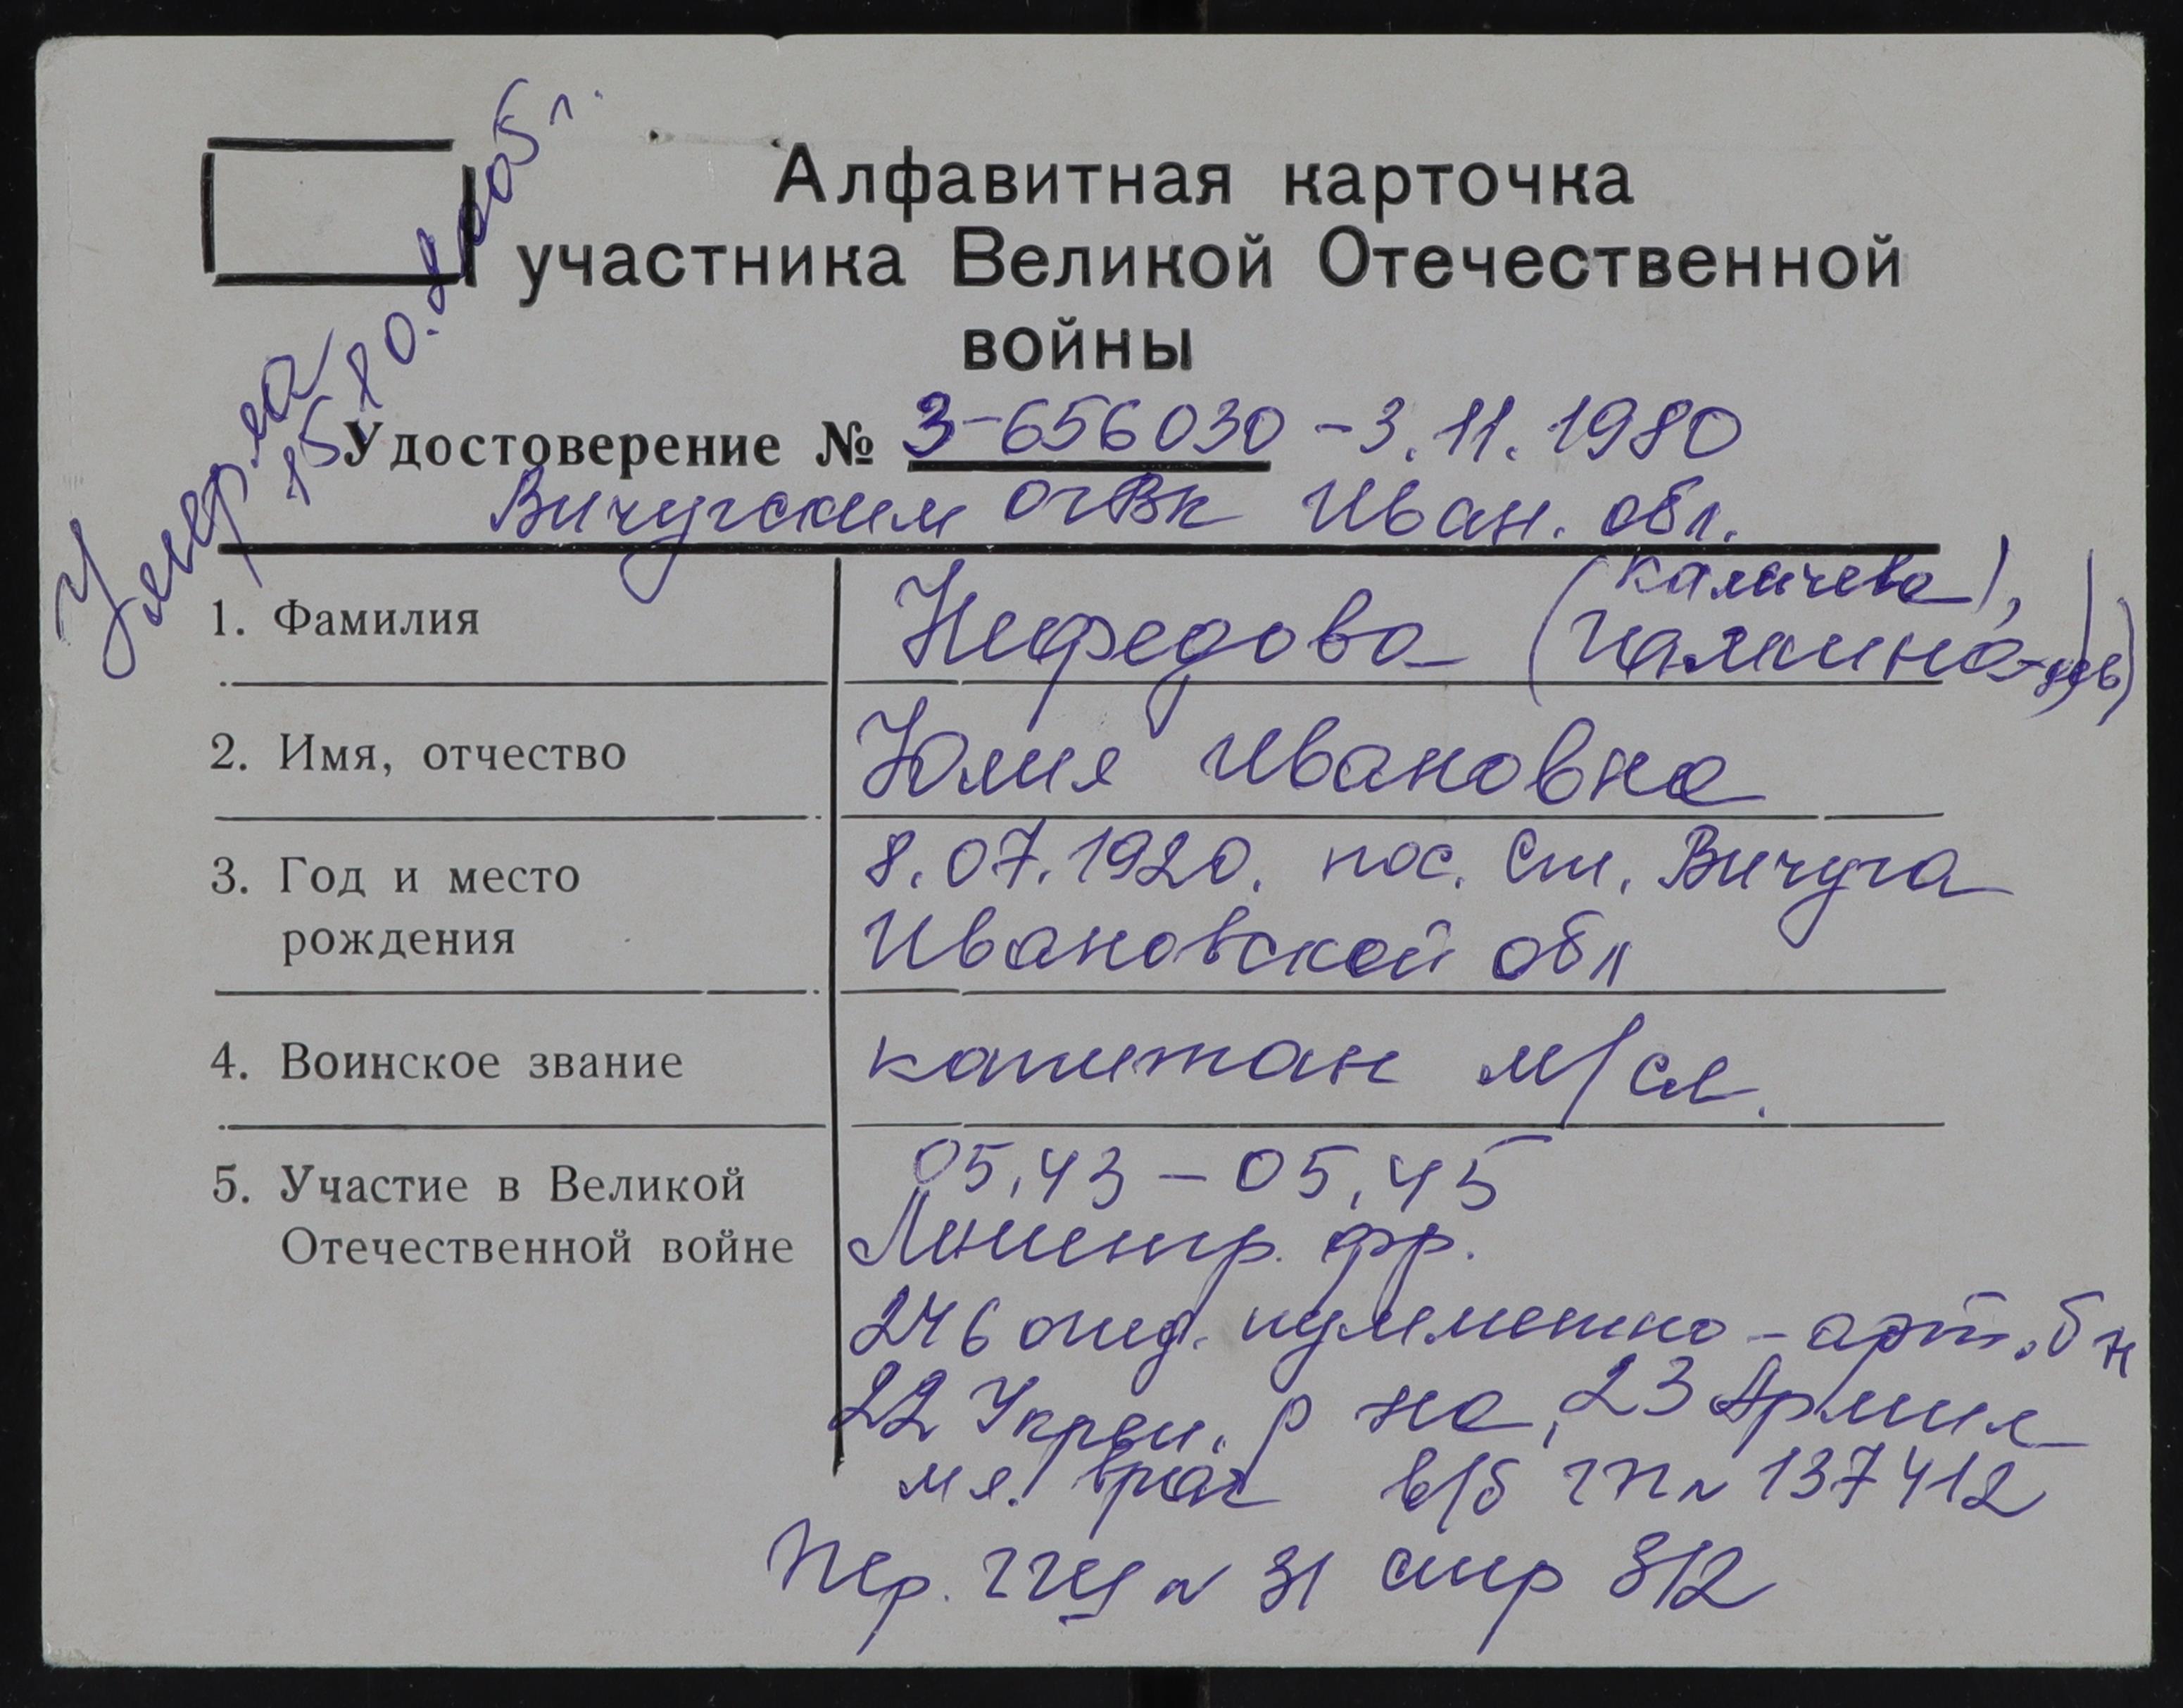 Умерла
15.10.2005 г.
Алфавитная карточка
участника Великой Отечественной
войны
Удостоверение № З-656030 - 3.11.1980
Вичугским ОГВК Иван. обл.
1. Фамилия
(Калачева),
Нефедова (Галкина-дев)
2. Имя, отчество
Юлия Ивановна
3. Год и место
рождения
8.07.1920. пос. Ст. Вичуга
Ивановской обл
4. Воинское звание
капитан м/сл.
5. Участие в Великой
Отечественной войне
05.43 - 05.45
Ленингр. фр.
246 отд. пулеметно-арт. б н
22 Укреп. р на, 23 Армия
мл. врач в/б ГП № 137412
Пер. № 31 стр 312